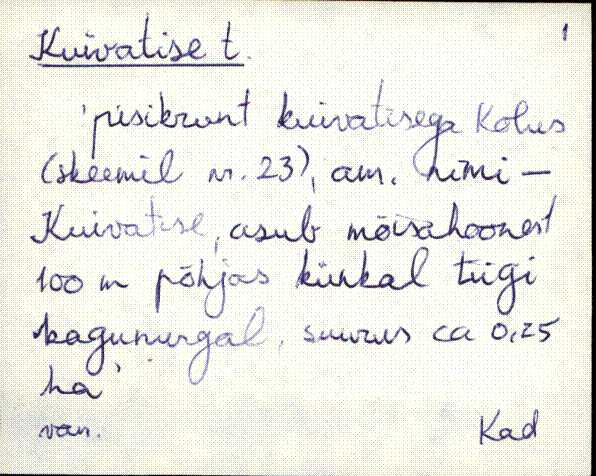 Kuivatise t. 1
'pisikrunt kuivatisega Kolus
(skeemil nr. 23), am. nimi –
Kuivatise, asub mõisahoonest
100 m põhjas künkal tiigi
kagunurgal, suurus ca 0,25
ha'
van. Kad